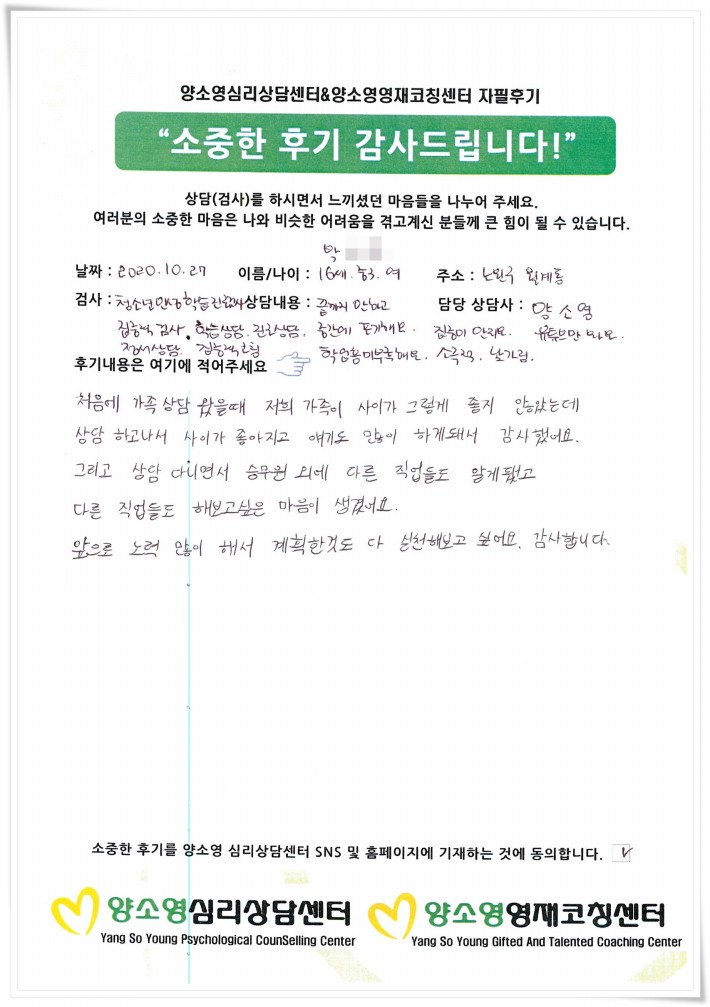 양소영심리상담센터&양소영영재코칭센터 자필후기
“소중한 후기 감사드립니다!”
상담(검사)를 하시면서 느끼셨던 마음들을 나누어 주세요.
여러분의 소중한 마음은 나와 비슷한 어려움을 겪고계신 분들께 큰 힘이 될 수 있습니다.
박
날짜 : 2020.10.27 이름/나이 : 16세. 중3. 여 주소 : 노원구 월계동
검사 : 청소년 상담내용 : 끝까지 안하고 담당 상담사 : 양소영
집중력 검사. 학습상담. 진로상담. 중간에 포기해요. 집중이 안되요. 유튜브만 봐요.
정서상담. 집중력 학업흥미부족해요. 소극적. 낯가림.
후기내용은 여기에 적어주세요
처음에 가족 상담 왔을때 저희 가족이 사이가 그렇게 좋지 않았는데
상담 하고나서 사이가 좋아지고 얘기도 많이 하게돼서 감사했어요.
그리고 상담 다니면서 승무원 외에 다른 직업들도 알게됐고
다른 직업들도 해보고싶은 마음이 생겼어요.
앞으로 노력 많이 해서 계획한것도 다 실천해보고 싶어요. 감사합니다.
소중한 후기를 양소영 심리상담센터 SNS 및 홈페이지에 기재하는 것에 동의합니다. ✓
양소영심리상담센터 양소영영재코칭센터
Yang So Young Psychological CounSelling Center Yang So Young Gifted And Talented Coaching Center